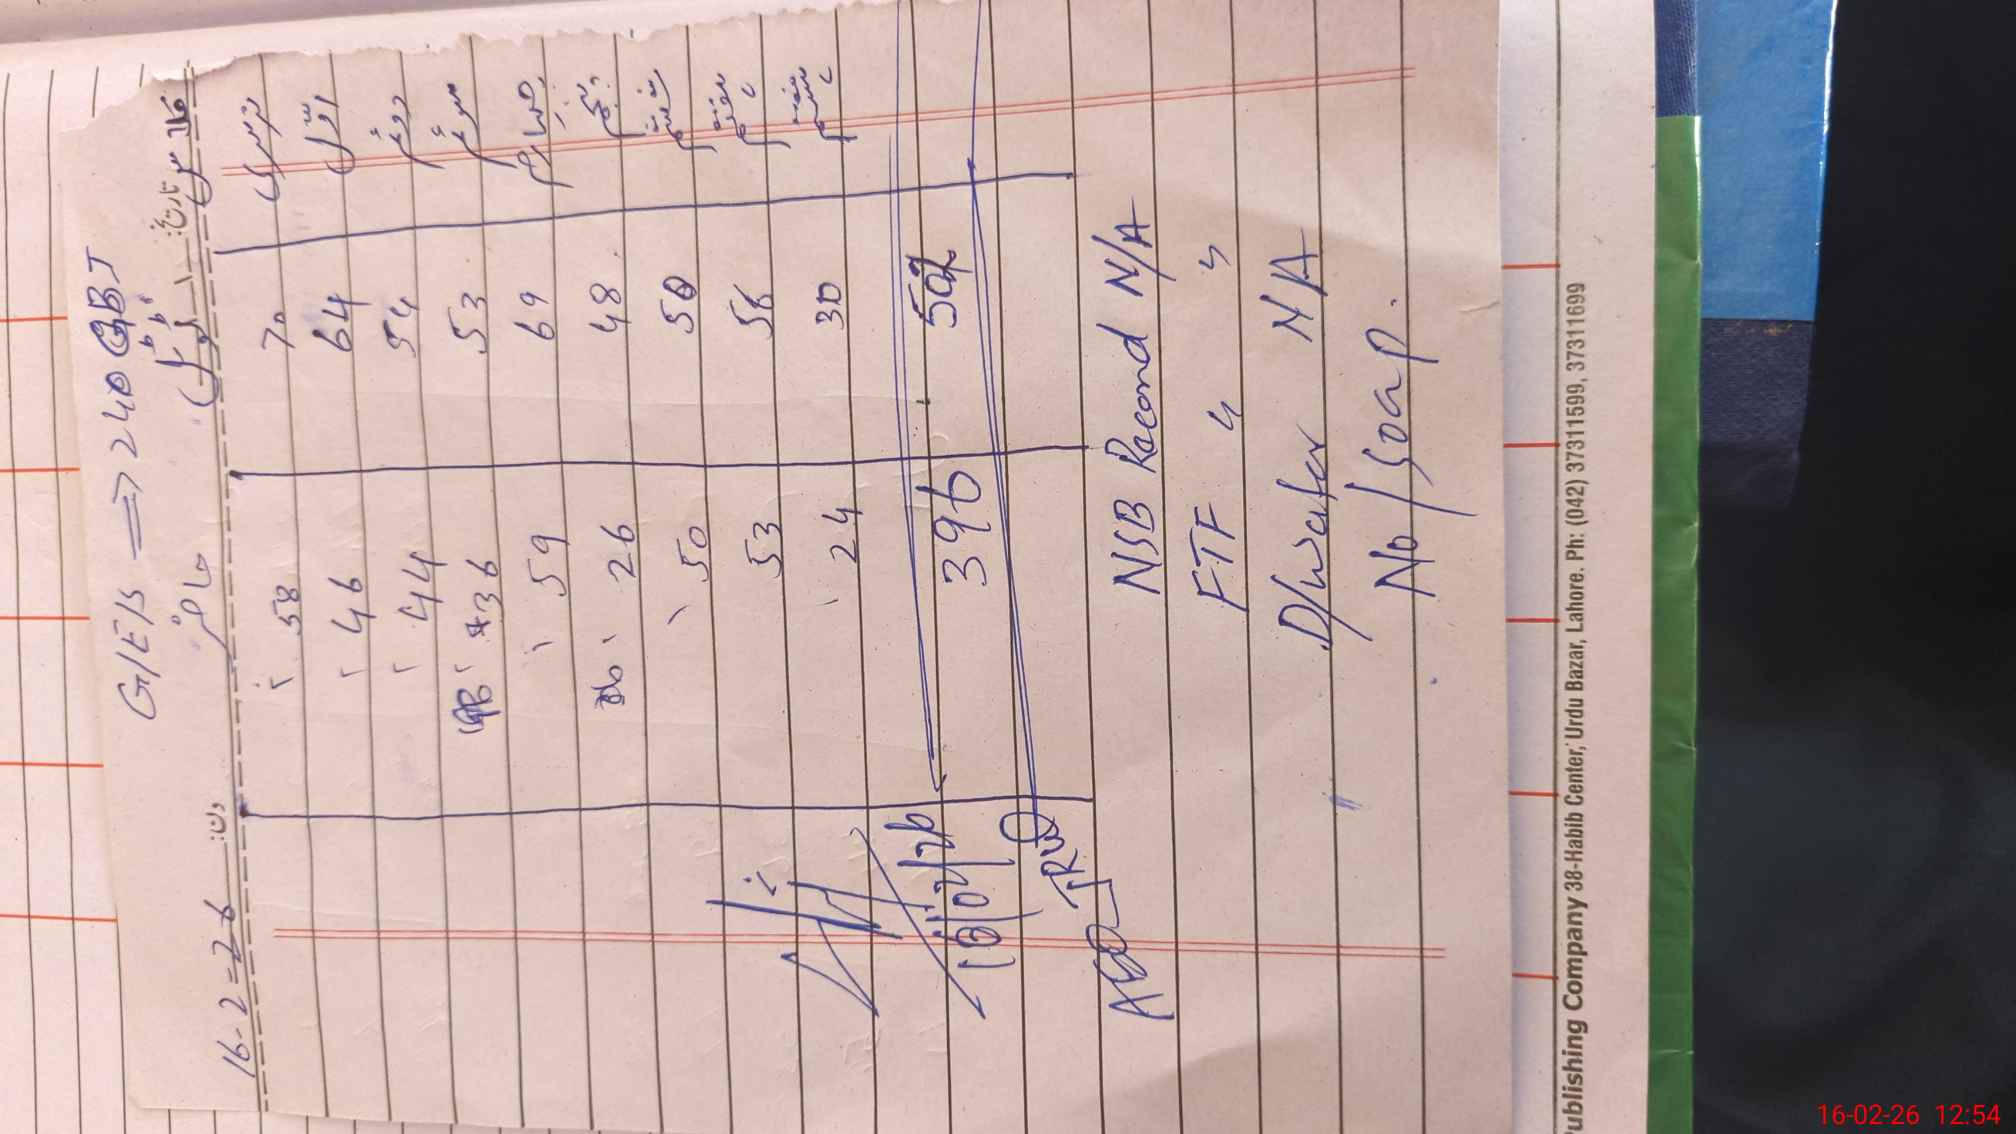 G/E/S ⇒ 240 GBJ
تاریخ: دن: 16-2-26
کلاس ٹوٹل حاضر
نرسری 70 58
اول 64 46
دوئم 54 44
سوئم 53 36
چہارم 69 59
پنجم 48 26
ششم 50 50
ہفتم 56 53
ہشتم 30 24
396
16/02/26
NSB Record N/A
FTF 〃 〃
D/water N/A
No/soap.
Publishing Company 38-Habib Center, Urdu Bazar, Lahore. Ph: (042) 37311599, 37311699
16-02-26 12:54